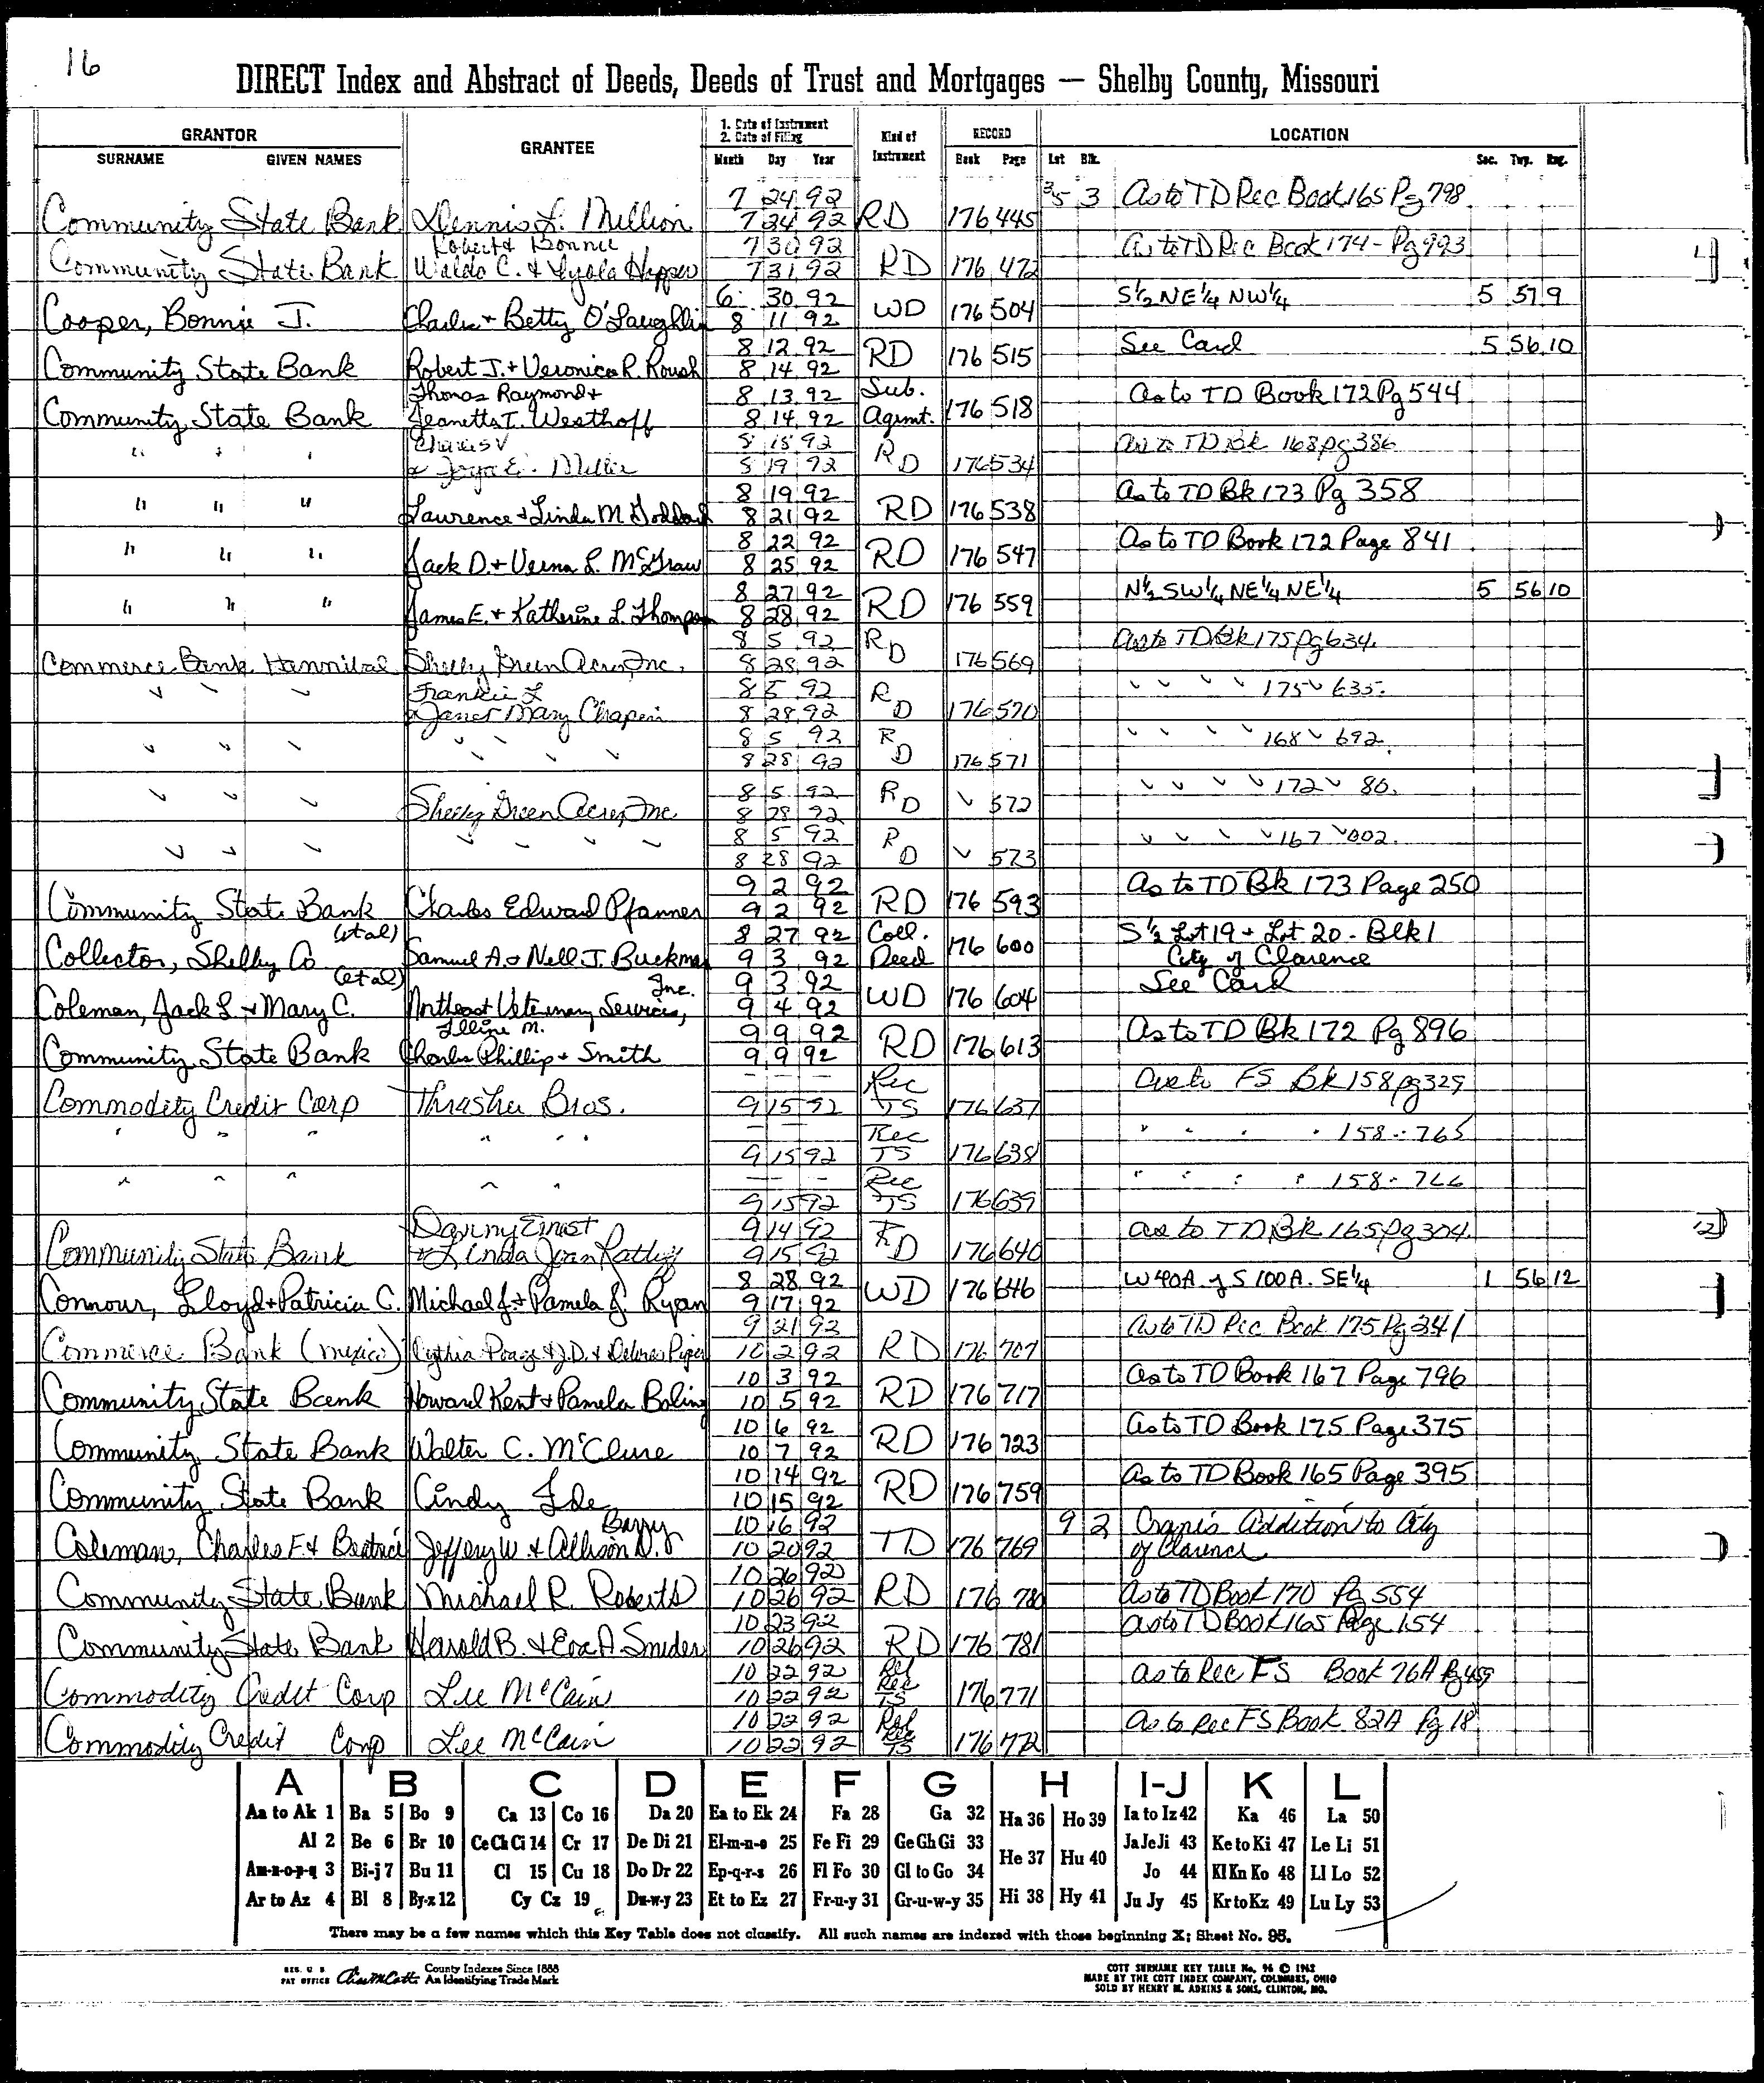 16
DIRECT Index and Abstract of Deeds, Deeds of Trust and Mortgages — Shelby County, Missouri
GRANTOR
SURNAME GIVEN NAMES
GRANTEE
1. Date of Instrument
2. Date of Filing
Month Day Year
Kind of Instrument
RECORD
Book Page
LOCATION
Lot Blk. Sec. Twp. Rng.
7 24 92 35 3 As to TD Rec Book 165 Pg 798
Community State Bank Dennis L. Million 7 24 92 RD 176 445
Robert & Bonnie 7 30 92 As to TD Rec Book 174 - Pg 993
Community State Bank Waldo C. & Lyola Hepper 7 31 92 RD 176 472
6 30 92 S½ NE¼ NW¼ 5 57 9
Cooper, Bonnie J. Charles + Betty O'Laughlin 8 11 92 WD 176 504
8 12 92 See Card 5 56 10
Community State Bank Robert J. + Veronica R. Roush 8 14 92 RD 176 515
Thomas Raymond + 8 13 92 Sub. As to TD Book 172 Pg 544
Community State Bank Jeanette T. Westhoff 8 14 92 Agemt. 176 518
Charles V 8 18 92 As to TD Bk 168 pg 386
" " " & Joyce E. Miller 8 19 92 RD 176 534
8 19 92 As to TD Bk 173 Pg 358
" " " Laurence + Linda M. Goddard 8 21 92 RD 176 538
8 22 92 As to TD Book 172 Page 841
" " " Jack D. + Verna L. McGraw 8 25 92 RD 176 547
8 27 92 N½ SW¼ NE¼ NE¼ 5 56 10
" " " James E. + Katherine L. Thompson 8 28 92 RD 176 559
8 5 92 As to TD Bk 175 pg 634.
Commerce Bank Hannibal Shelly Green Acres, Inc. 8 28 92 RD 176 569
Frankie L 8 5 92 " " " " 175 " 635.
" " " & Janet Mary Chapin 8 28 92 RD 176 570
8 5 92 " " " " 168 " 692.
" " " " " " " 8 28 92 RD 176 571
8 5 92 " " " " 172 " 86.
" " " Shelly Green Acres, Inc 8 28 92 RD " 572
8 5 92 " " " " 167 " 002.
" " " " " " " 8 28 92 RD " 573
9 2 92 As to TD Bk 173 Page 250
Community State Bank Charles Edward Pfanner 9 2 92 RD 176 593
(et al) 8 27 92 Coll. S½ Lot 19 + Lot 20 - Blk 1
Collector, Shelby Co Samuel A. & Nell J. Buckman 9 3 92 Deed 176 600 City of Clarence
(et al) Inc. 9 3 92 See Card
Coleman, Jack L + Mary C. Northeast Veterinary Services, 9 4 92 WD 176 604
Illine M. 9 9 92 As to TD Bk 172 Pg 896
Community State Bank Charles Phillip + Smith 9 9 92 RD 176 613
— — — Rec As to FS Bk 158 pg 329
Commodity Credit Corp Thrasher Bros. 9 15 92 TS 176 637
— — Rec " " " " 158 " 765
" " " " " " 9 15 92 TS 176 638
— — — Rec " " " " 158 " 766
" " " " " 9 15 92 TS 176 639
Danny Ernest 9 14 92 As to TD Bk 165 pg 304.
Community State Bank & Linda Jean Ratliff 9 15 92 RD 176 640
8 28 92 W 40A. of S 100A. SE¼ 1 56 12
Connour, Lloyd + Patricia C. Michael J. + Pamela J. Ryan 9 17 92 WD 176 646
9 21 92 As to TD Rec Book 175 Pg 341
Commerce Bank (Mexico) & J.D. & Delores Piper 10 2 92 RD 176 707
10 3 92 As to TD Book 167 Page 796
Community State Bank Howard Kent + Pamela Boling 10 5 92 RD 176 717
10 6 92 As to TD Book 175 Page 375
Community State Bank Walter C. McClure 10 7 92 RD 176 723
10 14 92 As to TD Book 165 Page 395
Community State Bank Cindy Ide 10 15 92 RD 176 759
Barry 10 16 92 9 2 Crane's Addition to City
Coleman, Charles F. & Beatrice Jeffery W. & Allison D. & 10 20 92 TD 176 769 of Clarence
10 26 92
Community State Bank Michael R. Roberts 10 26 92 RD 176 780 As to TD Book 170 Pg 554
10 23 92 As to TD Book 165 Page 154
Community State Bank Harold B. & Eva A. Snider 10 26 92 RD 176 781
10 22 92 Rel As to Rec FS Book 76A Pg 459
Commodity Credit Corp Lee McCain 10 22 92 Rec TS 176 771
10 22 92 Rel As to Rec FS Book 82A Pg 18
Commodity Credit Corp Lee McCain 10 22 92 Rec TS 176 772
A B C D E F G H I-J K L
Aa to Ak 1 Ba 5 Bo 9 Ca 13 Co 16 Da 20 Ea to Ek 24 Fa 28 Ga 32 Ha 36 Ho 39 Ia to Iz 42 Ka 46 La 50
Al 2 Be 6 Br 10 Ce Ch Ci 14 Cr 17 De Di 21 El-m-n-o 25 Fe Fi 29 Ge Gh Gi 33 He 37 Hu 40 Ja Je Ji 43 Ke to Ki 47 Le Li 51
Am-n-o-p-q 3 Bi-j 7 Bu 11 Cl 15 Cu 18 Do Dr 22 Ep-q-r-s 26 Fl Fo 30 Gl to Go 34 Jo 44 Kl Kn Ko 48 Ll Lo 52
Ar to Az 4 Bl 8 By-z 12 Cy Cz 19 Du-w-y 23 Et to Ez 27 Fr-u-y 31 Gr-u-w-y 35 Hi 38 Hy 41 Ju Jy 45 Kr to Kz 49 Lu Ly 53
There may be a few names which this Key Table does not classify. All such names are indexed with those beginning X; Sheet No. 95.
REG. U S PAT OFFICE
County Indexes Since 1888
An Identifying Trade Mark
COTT SURNAME KEY TABLE No. 96 © 1962
MADE BY THE COTT INDEX COMPANY, COLUMBUS, OHIO
SOLD BY HENRY M. ADKINS & SONS, CLINTON, MO.